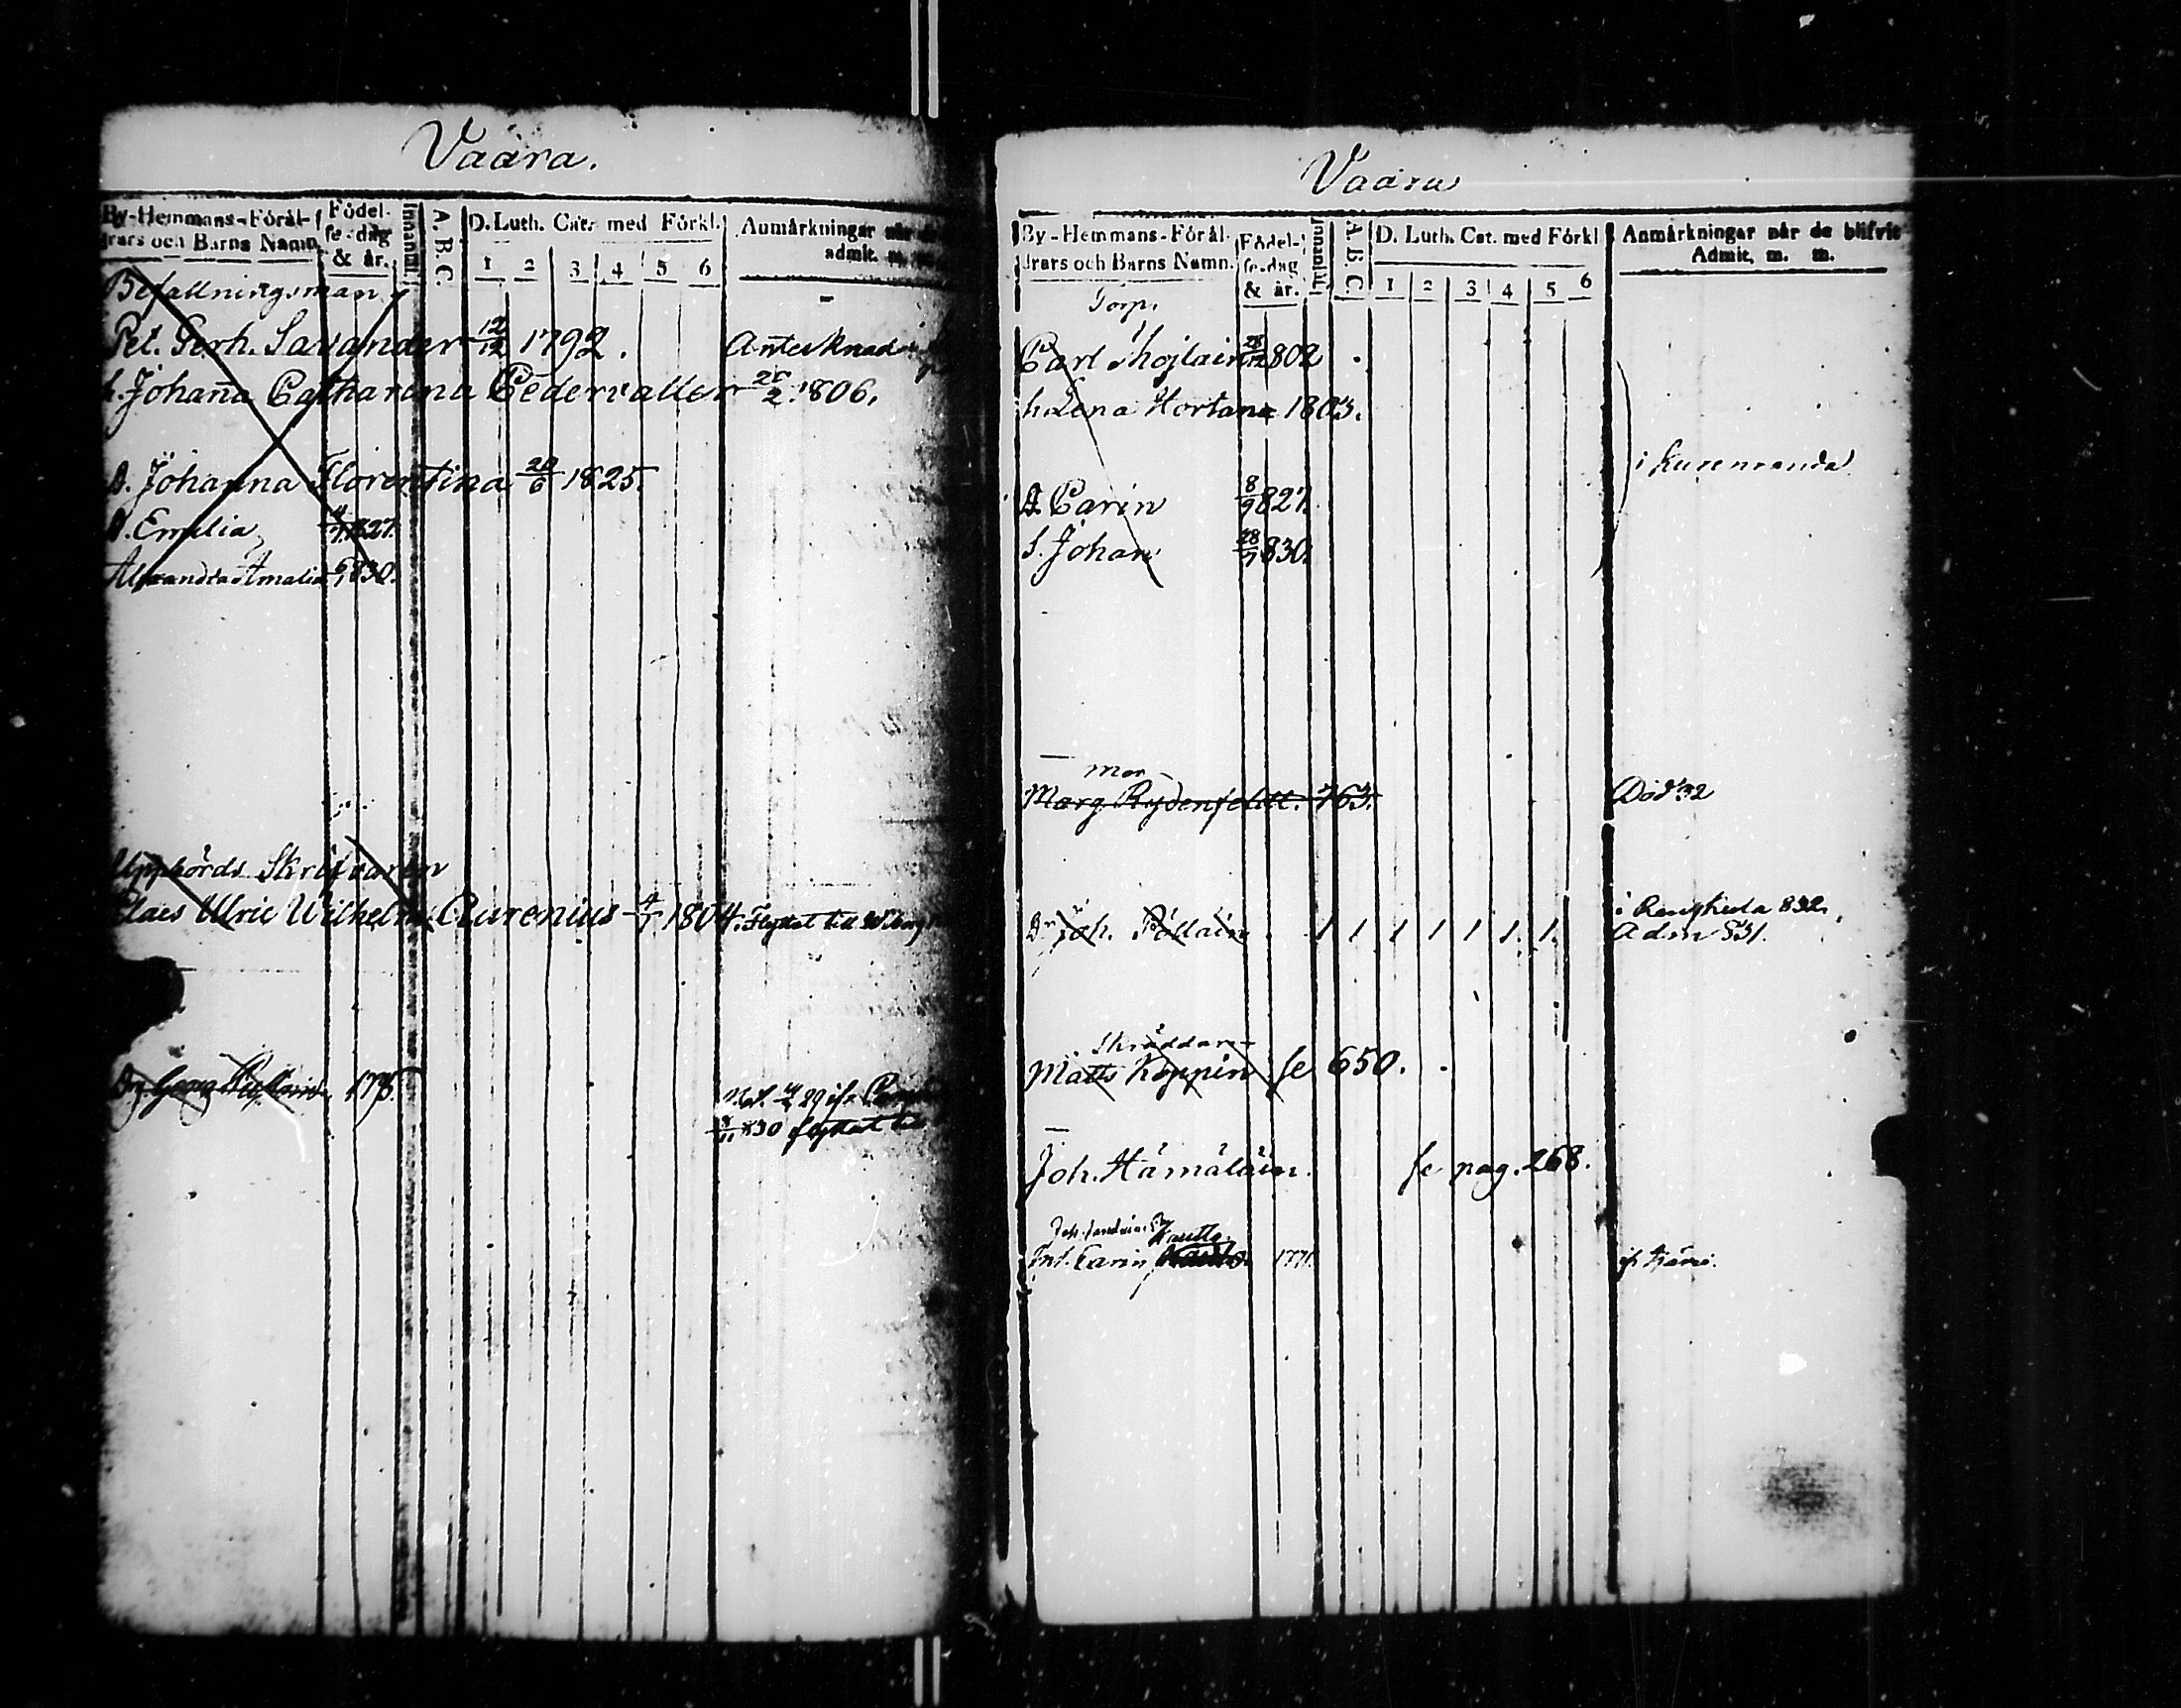 Vaara.
By-Hemmans-Föräl-
drars och Barns Namn.
Födel-
se-dag
& år.
Innantil
A. B. C.
D. Luth. Cat. med Förkl.
1 2 3 4 5 6
Anmärkningar när de
admit. m.
Befallningsman
Pet. Gerh. Savander 12/12 1792. Antecknad
h. Johanna Catharina Cedervaller 25/2 1806.
D. Johanna Florentina 20/6 1825.
D. Emilia 827.
Alexandra Amalia 830.
Uppbörds Skrifvaren
Claes Ulric Wilhelm Aurenius 4/7 1804. Flyttat till Wiborg
Dr. Georg
29 ifr.
830 flyttat till
Vaara
By-Hemmans-Föräl-
drars och Barns Namn.
Födel-
se-dag
& år.
Innantil
A. B. C.
D. Luth. Cat. med Förkl
1 2 3 4 5 6
Anmärkningar när de blifvit
Admit. m. m.
Torp.
Carl 802
h. Lena Hortana 1803.
i Kurenranda
D. Carin 8/9 827.
S. Johan 28/7 830.
Mor
Marg. Rydenfeldt. 763. Död 32
i 832.
Dr. Joh. Pöllain 1 1 1 1 1 1 1 Adm 831.
Skräddare
Matts Koppin se 650.
Joh. Hämäläin. se pag. 268.
Inh. Carin 177